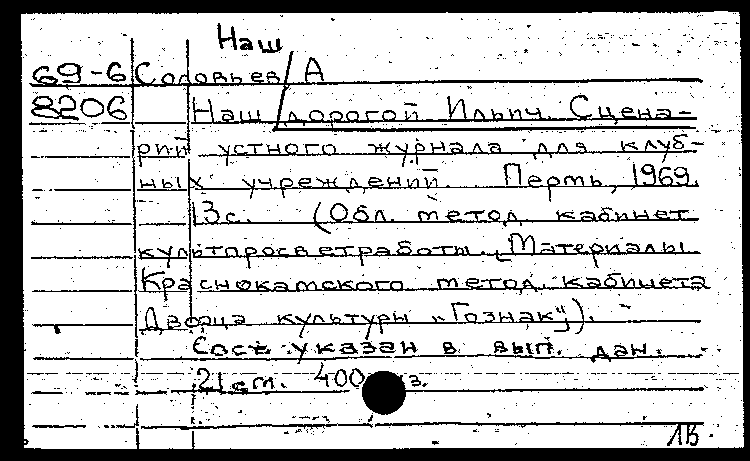 Наш
69-6 Соловьев/ А
8206 Наш /дорогой Ильич. Сцена-
рий устного журнала для клуб-
ных учреждений. Пермь, 1969.
13с. (Обл. метод. кабинет
культпросветработы. [Материалы
Краснокамского метод. кабинета
Дворца культуры "Гознак"]).
Сост. указан в вып. дан.
21 см. 400 з.